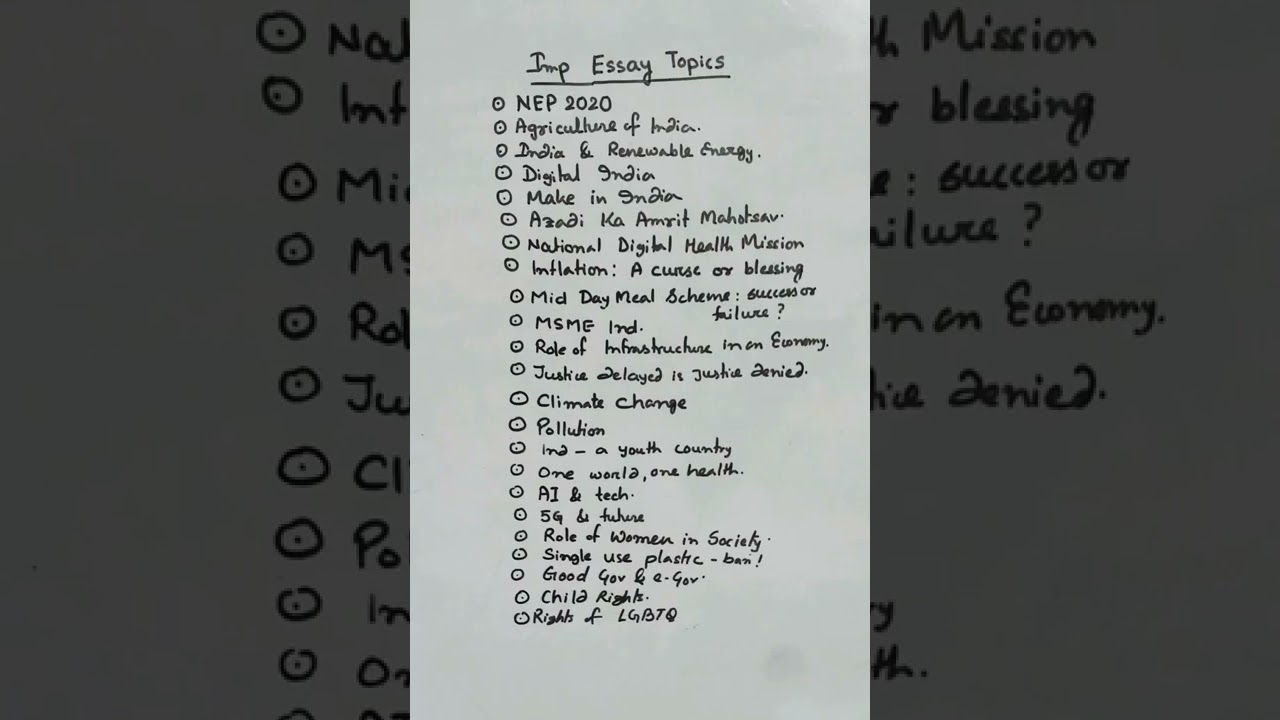 Imp Essay Topics
NEP 2020
Agriculture of India.
India & Renewable Energy.
Digital India
Make in India
Azadi Ka Amrit Mahotsav.
National Digital Health Mission
Inflation: A curse or blessing
Mid Day Meal Scheme: success or
failure?
MSME Ind.
Role of Infrastructure in an Economy.
Justice delayed is Justice denied.
Climate Change
Pollution
Ind - a youth country
One world, one health.
AI & tech.
5G & future
Role of Women in Society.
Single use plastic - ban!
Good Gov & e-Gov.
Child Rights.
Rights of LGBTQ